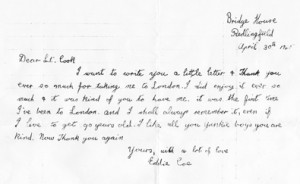 Bridge House
Redlingfield
April 30th
Dear Lt. Cook
I want to write you a little letter & thank you
ever so much for taking me to London. I did enjoy it ever so
much & it was kind of you to have me. it was the first time
I've been to London. and I shall always remember it, even if
I live to get 90 years old. I like all you yankie boys you are
kind. Now thank you again
Yours, with a lot of love
Eddie